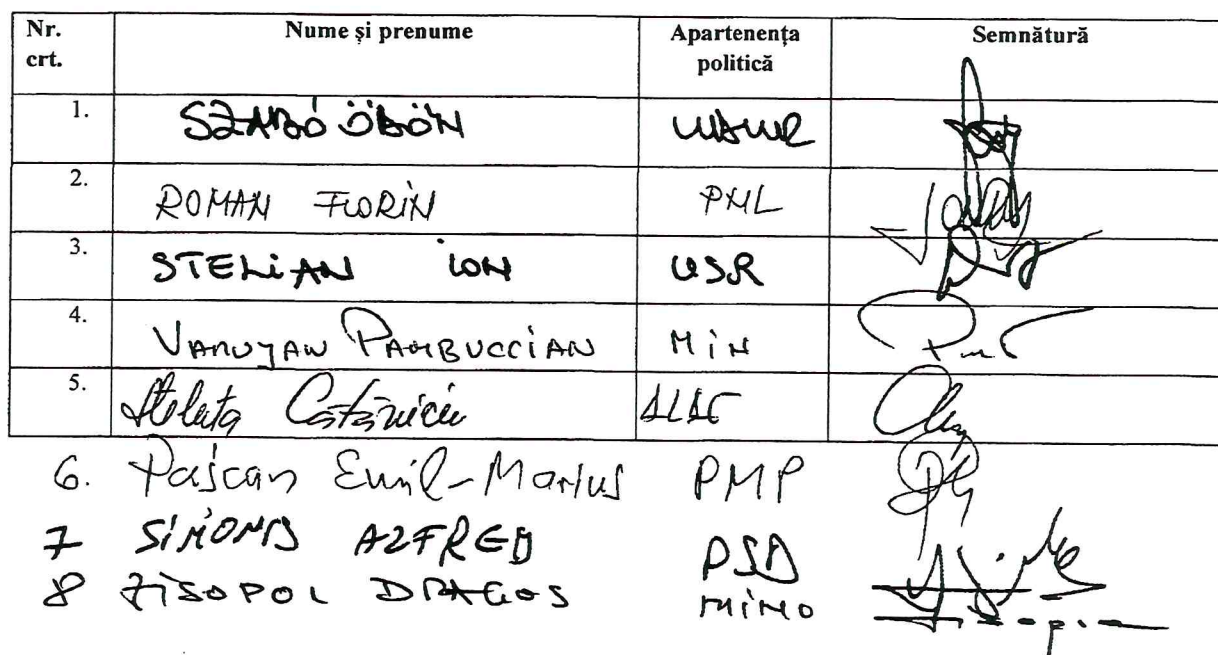 Nr. crt. Nume și prenume Apartenența politică Semnătură
1. SZABÓ ÖDÖN UDMR
2. ROMAN FLORIN PNL
3. STELIAN ION USR
4. VARUJAN PAMBUCCIAN Min
5. Steluța Cătăniciu ALDE
6. Pașcan Emil-Marius PMP
7 SIMONIS ALFRED PSD
8 ZISOPOL DRAGOS MINO